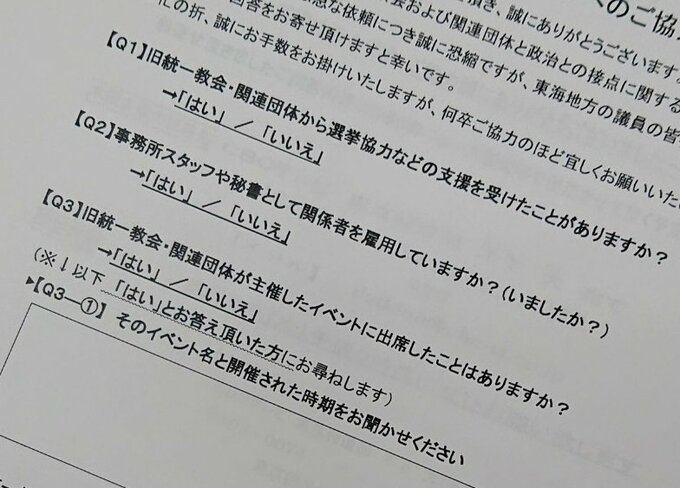 へのご協力
頂き、誠にありがとうございます。
会および関連団体と政治との接点に関する
急な依頼につき誠に恐縮ですが、東海地方の議員の皆
回答をお寄せ頂けますと幸いです。
忙の折、誠にお手数をお掛けいたしますが、何卒ご協力のほど宜しくお願いいた
【Q1】旧統一教会・関連団体から選挙協力などの支援を受けたことがありますか？
→「はい」 ／ 「いいえ」
【Q2】事務所スタッフや秘書として関係者を雇用していますか？（いましたか？）
→「はい」 ／ 「いいえ」
【Q3】旧統一教会・関連団体が主催したイベントに出席したことはありますか？
→「はい」 ／ 「いいえ」
（※↓以下 「はい」とお答え頂いた方にお尋ねします）
▶【Q3―①】 そのイベント名と開催された時期をお聞かせください